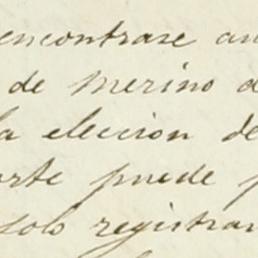 encontrase an
de merino d
la eleccion de
orte puede p
solo registran